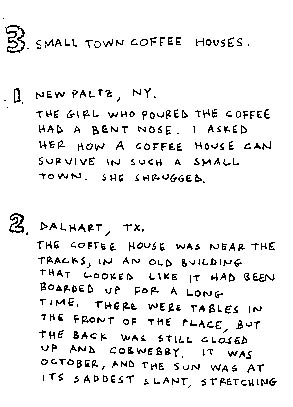 3. SMALL TOWN COFFEE HOUSES.
1. NEW PALTZ, NY.
THE GIRL WHO POURED THE COFFEE
HAD A BENT NOSE. I ASKED
HER HOW A COFFEE HOUSE CAN
SURVIVE IN SUCH A SMALL
TOWN. SHE SHRUGGED.
2. DALHART, TX.
THE COFFEE HOUSE WAS NEAR THE
TRACKS, IN AN OLD BUILDING
THAT LOOKED LIKE IT HAD BEEN
BOARDED UP FOR A LONG
TIME. THERE WERE TABLES IN
THE FRONT OF THE PLACE, BUT
THE BACK WAS STILL CLOSED
UP AND COBWEBBY. IT WAS
OCTOBER, AND THE SUN WAS AT
ITS SADDEST SLANT, STRETCHING